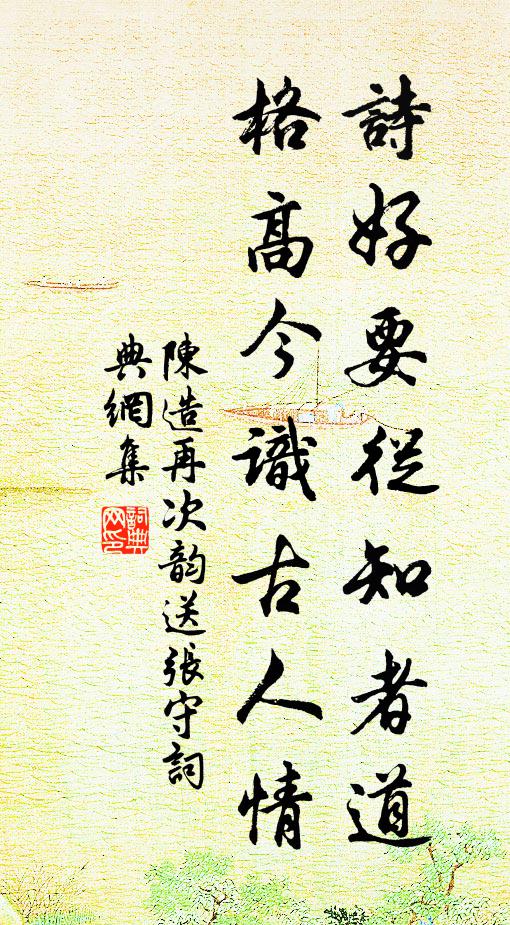 詩好要從知者道
格高今識古人情
陳造再次韵送張守詞
典網集
詞典
网印